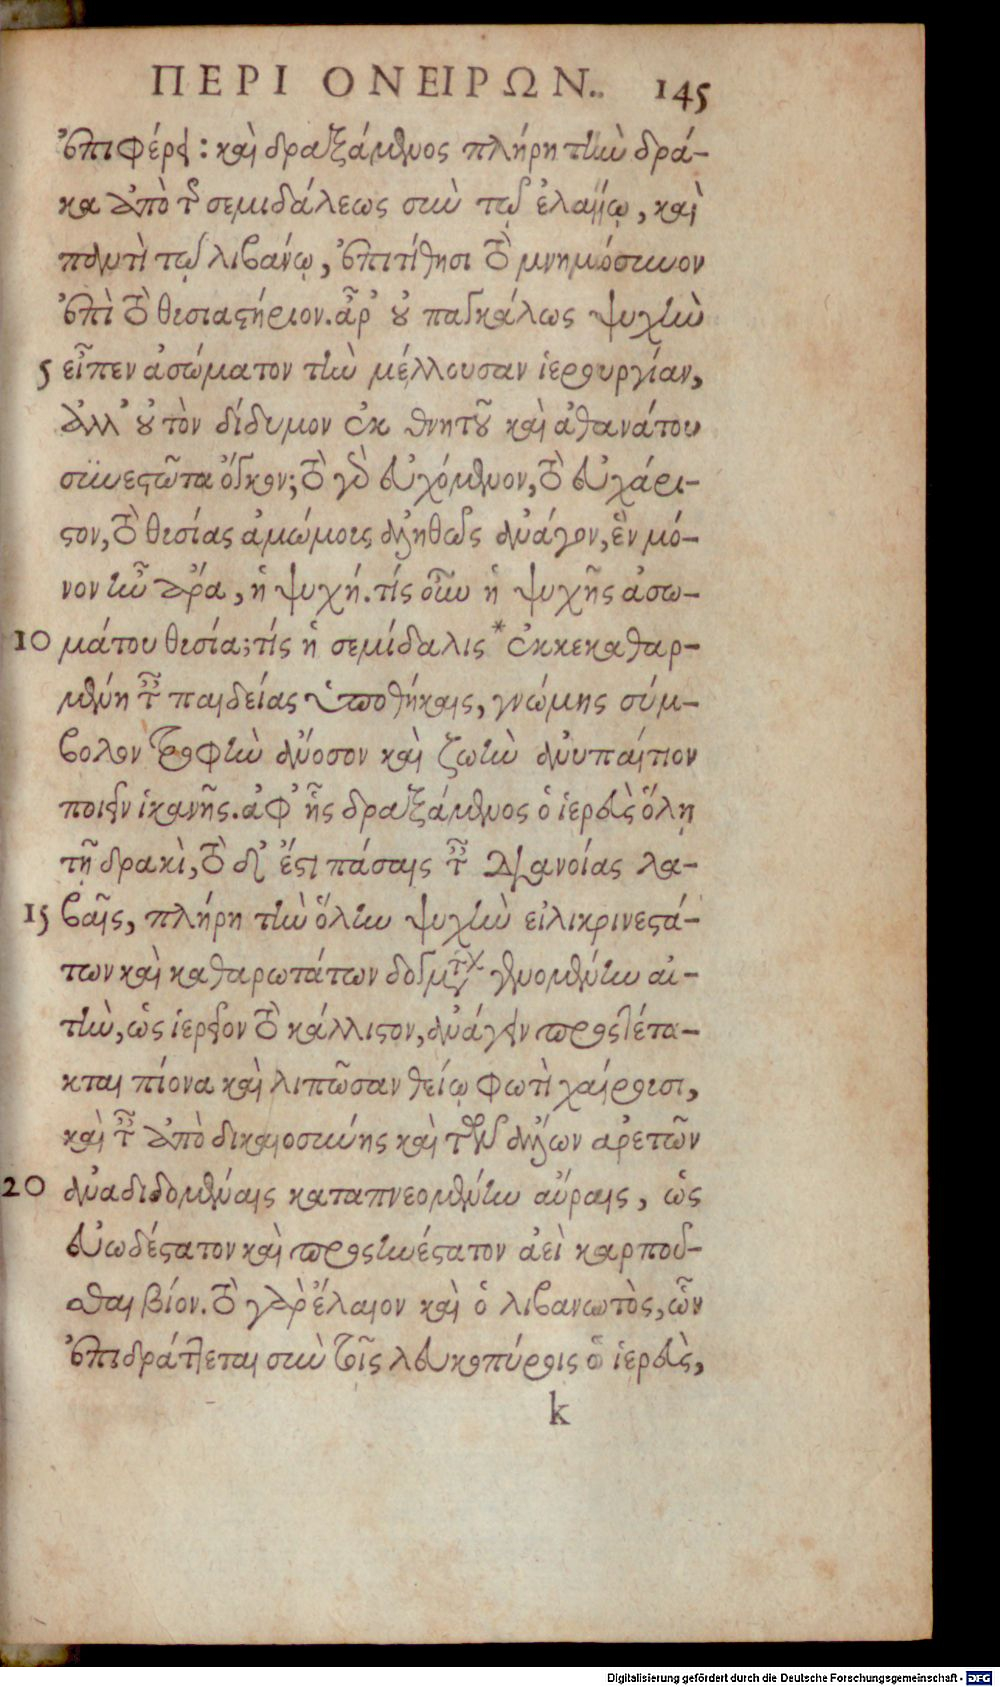 ΠΕΡΙ ΟΝΕΙΡΩΝ. 145
ἐπιφέρει: καὶ δραξάμενος πλήρη τὴν δρά-
κα ἀπὸ τῆς σεμιδάλεως σὺν τῷ ἐλαίῳ, καὶ
παντὶ τῷ λιβάνῳ, ἐπιτίθησι τὸ μνημόσυνον
ἐπὶ τὸ θυσιαστήριον. ἆρ' οὐ παγκάλως ψυχὴν
5 εἶπεν ἀσώματον τὴν μέλλουσαν ἱερουργίαν,
ἀλλ' οὐ τὸν δίδυμον ἐκ θνητοῦ καὶ ἀθανάτου
συνεστῶτα ὄγκον; τὸ γὰρ εὐχόμενον, τὸ εὐχάρι-
στον, τὸ θυσίας ἀμώμους ἀληθῶς ἀνάγον, ἓν μό-
νον ἦν ἄρα, ἡ ψυχή. τίς οὖν ἡ ψυχῆς ἀσω-
10 μάτου θυσία; τίς ἡ σεμίδαλις * ἐκκεκαθαρ-
μένη τῆς παιδείας ὑποθήκαις, γνώμης σύμ-
βολον τροφὴν ἄνοσον καὶ ζωὴν ἀνυπαίτιον
ποιεῖν ἱκανῆς. ἀφ' ἧς δραξάμενος ὁ ἱερεὺς ὅλῃ
τῇ δρακὶ, τὸ δέ ἐστι πάσαις τῆς διανοίας λα-
15 βαῖς, πλήρη τὴν ὅλην ψυχὴν εἰλικρινεστά-
των καὶ καθαρωτάτων δογμάτων γενομένην αὐ-
τὴν, ὡς ἱερεῖον τὸ κάλλιστον, ἀνάγειν προστέτα-
κται πίονα καὶ λιπῶσαν θείῳ φωτὶ χαίρουσι,
καὶ τῆς ἀπὸ δικαιοσύνης καὶ τῶν ἄλλων ἀρετῶν
20 ἀναδιδομέναις καταπνεομένην αὔραις, ὡς
εὐωδέστατον καὶ προσηνέστατον ἀεὶ καρποῦ-
σθαι βίον. τὸ γὰρ ἔλαιον καὶ ὁ λιβανωτὸς, ὧν
ἐπιδράττεται σὺν τοῖς λευκοπύροις ὁ ἱερεὺς,
k
Digitalisierung gefördert durch die Deutsche Forschungsgemeinschaft - DFG